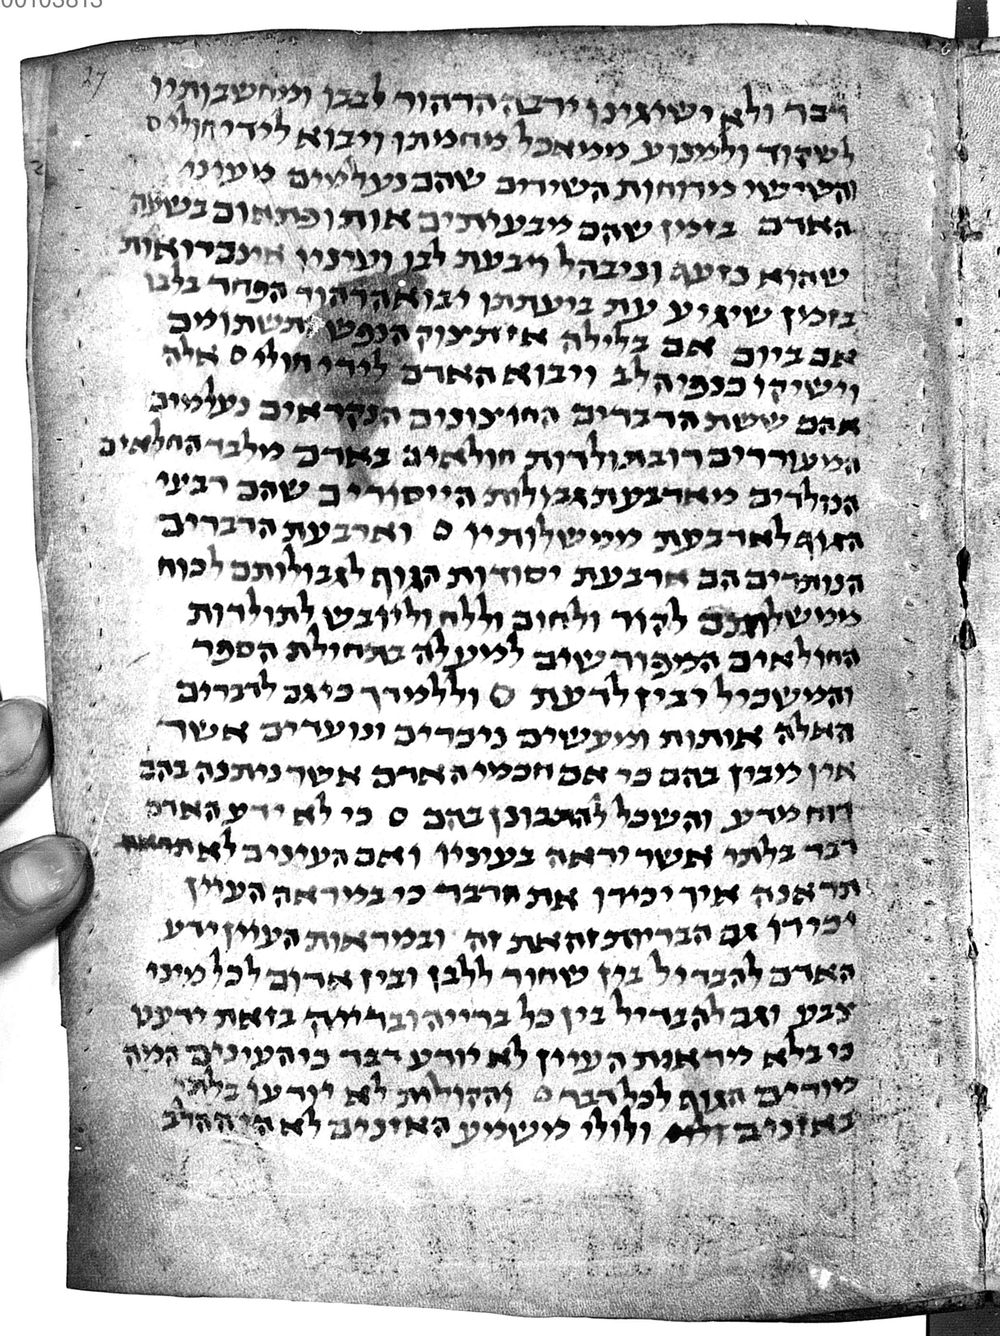 00103813
27
דבר ולא ישיגינו ירבה הרהור לבבו ומחשבותיו
לשקוד ולמנוע ממאכל מחמתו ויבוא לידי חולי ס
והשישי מרוחות השידים שהם נעלמים מעיני
האדם בזמן שהם מבעיתים אותו פתאום בשעה
שהוא נזעף וניבהל ויבעת לבו ועיניו אינם רואות
בזמן שיגיע עת ביעתתו יבוא הרהור הפחד בלבו
אם ביום אם בלילה אז תיצוק הנפש ותשתומם
וישיקו כנפי הלב ויבוא האדם לידי חולי ס אלה
אהם ששת הדברים החיצונים הנקראים נעלמים
המעוררים רוב תולדות חולאים באדם מלבד החלאים
הנולדים מארבעת גבולות הייסודים שהם רבעי
הגוף לארבעת ממשלותיו ס וארבעת הדברים
הנותרים הם ארבעת יסודות הגוף לגבולותם לכוח
ממשלותם לקור ולחום וללח וליובש לתולדות
החולאים המפורשים למעלה בתחילת הספר
והמשכיל יבין לדעת ס וללמדך כי גם לדברים
האלה אותות ומעשים ניכרים ונועדים אשר
אין מבין בהם כי אם חכמי האדם אשר ניתנה בהם
רוח מדע והשכל להתבונן בהם ס כי לא ידע האדם
דבר בלתי אשר יראה בעיניו ואם העינים לא
תראנה איך יכירו את הדבר כי במראה העיין
יכירו גם הבריות זה את זה ובמראות העיין ידע
האדם להבדיל בין שחור ללבן ובין אדום לכל מיני
צבע וגם להבדיל בין כל ברייה וברייה בזאת ידענו
כי בלא מראות העיין לא יודע דבר כי העינים המה
מורים הגוף לכל דבר ס והקולות לא יודעו בלתי
באזנים ולולי משמע האזנים לא היה הלב